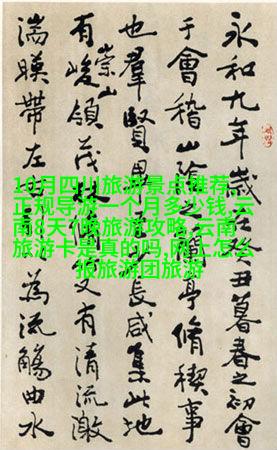 永和九年歲在癸丑暮春之初會
于會稽山陰之蘭亭脩稧事
也羣賢畢至少長咸集此地
有崇山峻領茂林脩竹又有清流激
湍暎帶左為流觴曲水
10月四川旅游景点推荐,
正规导游一个月多少钱,云
南8天7晚旅游攻略,云南
旅游卡是真的吗,网上怎么
报旅游团旅游